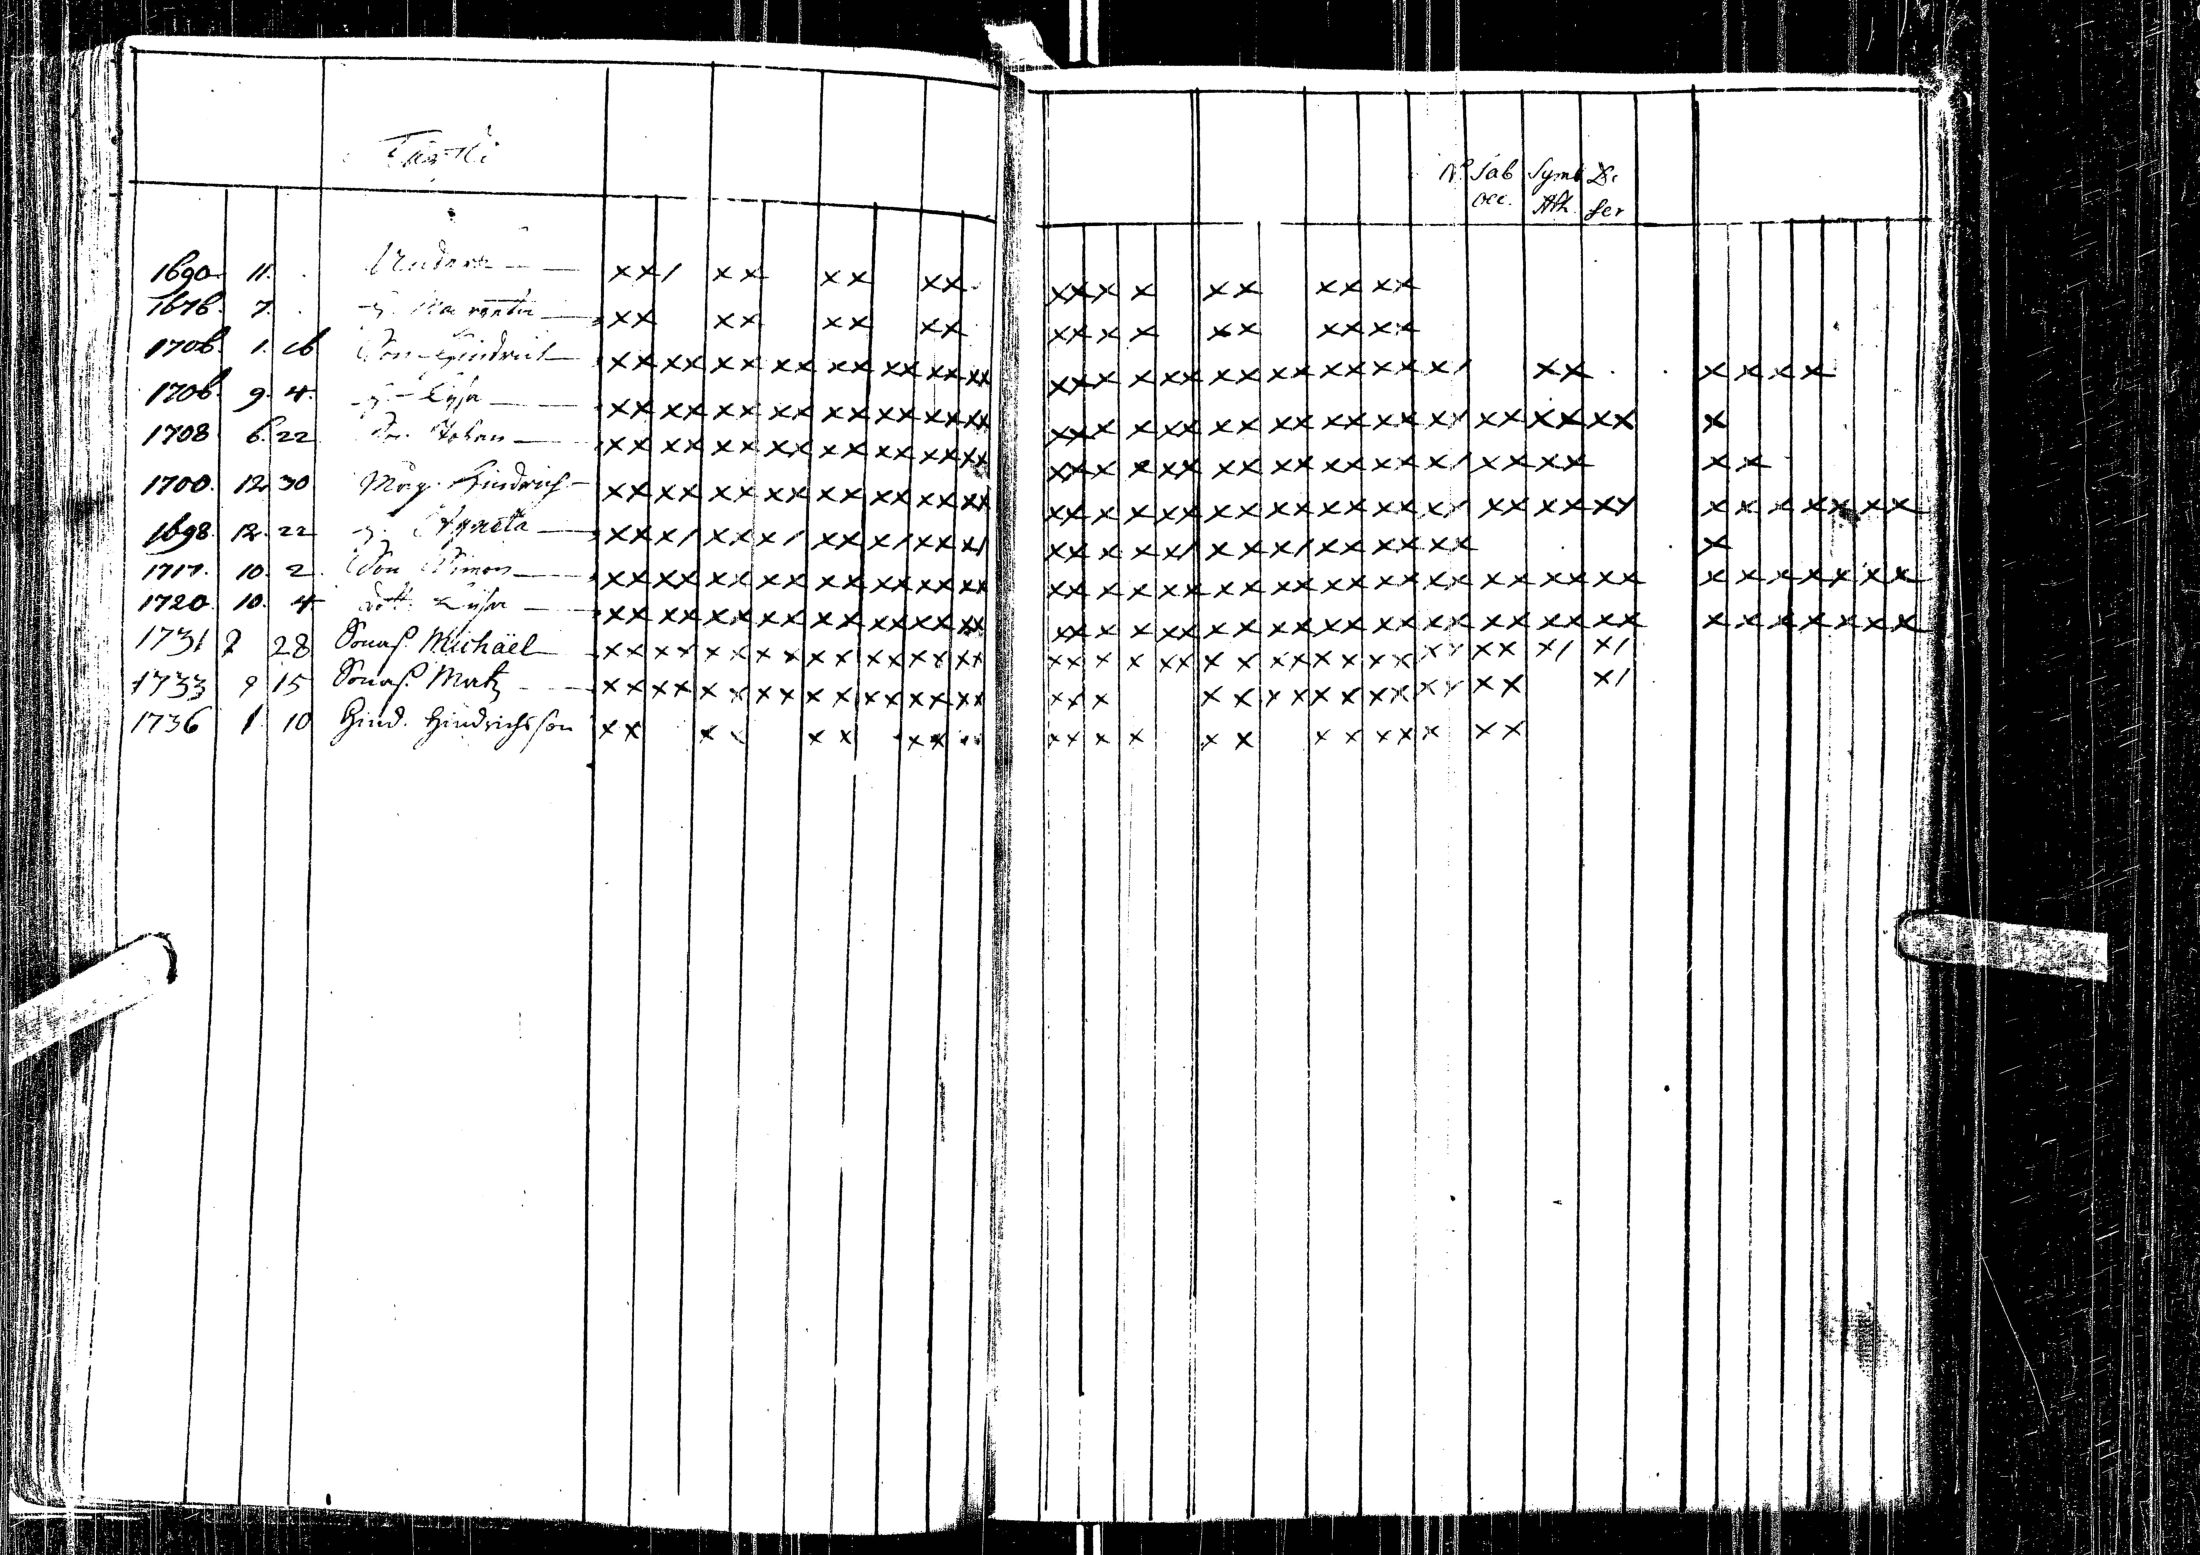 N: Tab Symb De
oec. Ath. fer
1690 11. Anders xx/ xx xx xx xxx x xx xxxx
1676. 7. H. Margeta xx xx xx xx xxx x xx xxxx
1706. 1. 26 Son Hindrich xx xx xx xx xx xx xx xx xxx x xx xx xx xx xx x/ xx x x x x
1706. 9. 4. H. Lijsa xx xx xx xx xx xx xx xx xxx x xx xx xx xx xx x/ xx xx xx x
1708 6. 22 Son Johan xx xx xx xx xx xx xx xx xxx x xx xx xx xx xx x/ xx xx x x
1700. 12. 30 Måg. Hindrich xx xx xx xx xx xx xx xx xxx x xx xx xx xx xx x/ xx xx xx x x x x x x x
1698. 12. 22 H. Agneta xx x/ xx x/ xx x/ xx x/ xxx x x/ xx x/ xx xx xx x
1717. 10. 2. Son Simon xx xx xx xx xx xx xx xx xxx x xx xx xx xx xx xx xx xx xx x x x x x x x
1720. 10. 4 dott. Lijsa xx xx xx xx xx xx xx xx xxx x xx xx xx xx xx xx xx xx xx x x x x x x x
1731 2 28 Sonas. Michaël xx xx xx xx xx xx xx xx xxx x xx xx xx xx xx xx xx x/ x/
1733 9 15 Sonas. Matz xx xx xx xx xx xx xx xx xxx xx xx xx xx xx xx x/
1736 1 10 Hind. Hindrichsson xx xx xx xx xxx x xx xx xx x xx